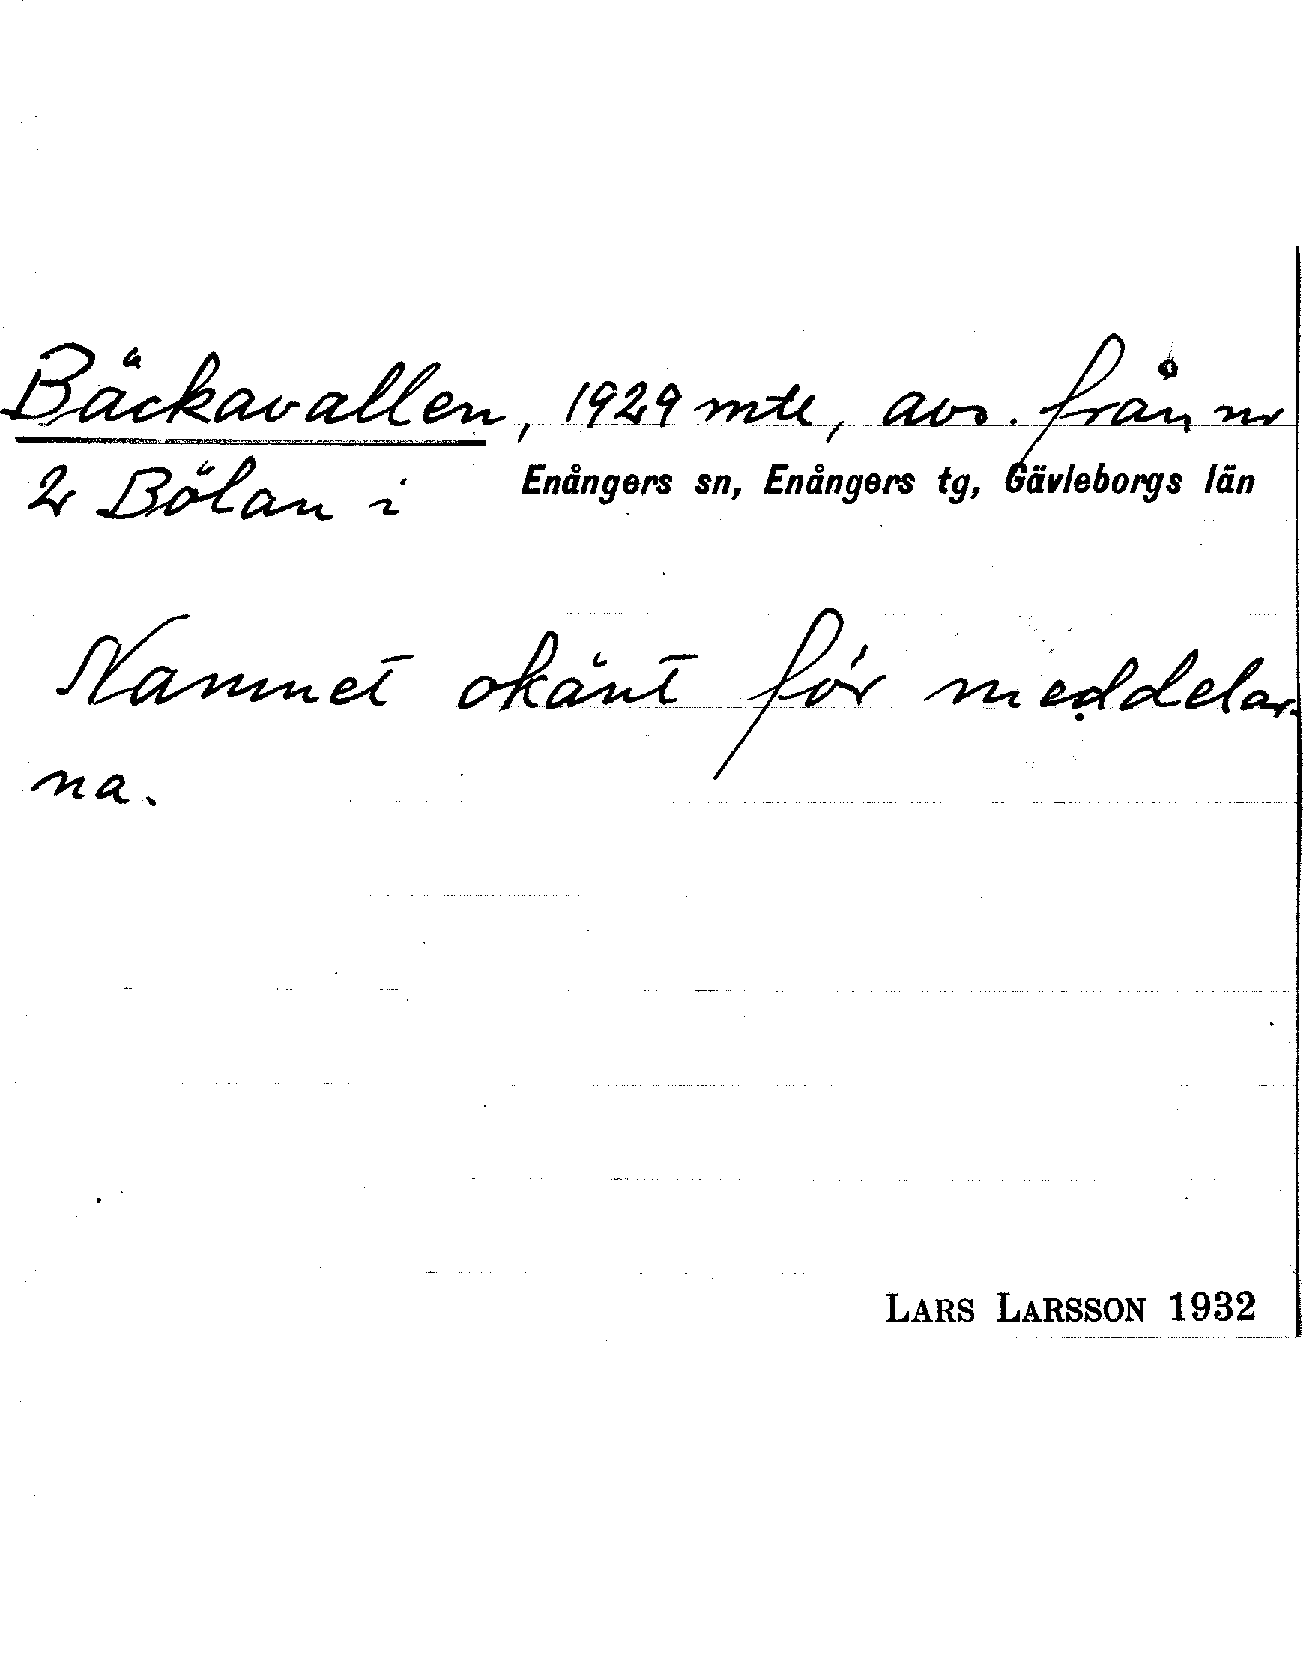 Bäckavallen, 1929 mtl, avs. från nr
2 Bölan i Enångers sn, Enångers tg, Gävleborgs län
Namnet okänt för meddelar-
na.
LARS LARSSON 1932